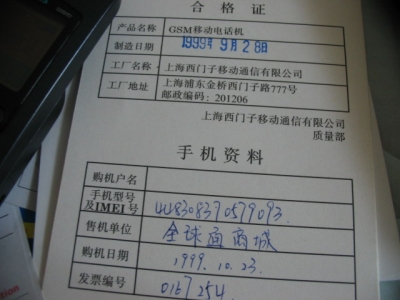 合格证
产品名称 GSM移动电话机
制造日期 1999年9月28日
工厂名称: 上海西门子移动通信有限公司
工厂地址: 上海浦东金桥西门子路777号
邮政编码: 201206
上海西门子移动通信有限公司
质量部
手机资料
购机户名
手机型号
及IMEI号 448308370579093.
售机单位 全球通商城
购机日期 1999.10.23.
发票编号 0167254